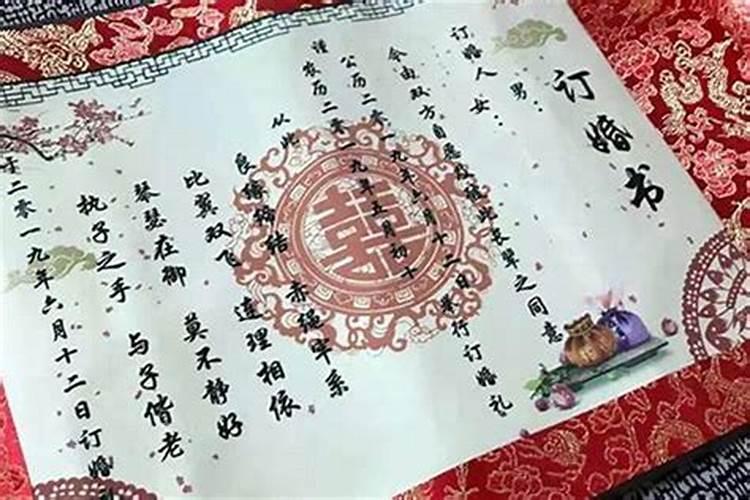 订婚书
男：
订婚人女：
今由双方自愿及征彼此长辈之同意
公历二零一九年六月十二日举行订婚礼
谨农历二零一九年五月初十
从此
良缘缔结 赤绳牢系
比翼双飞 连理相依
琴瑟在御 莫不静好
执子之手 与子偕老
于二零一九年六月十二日订婚